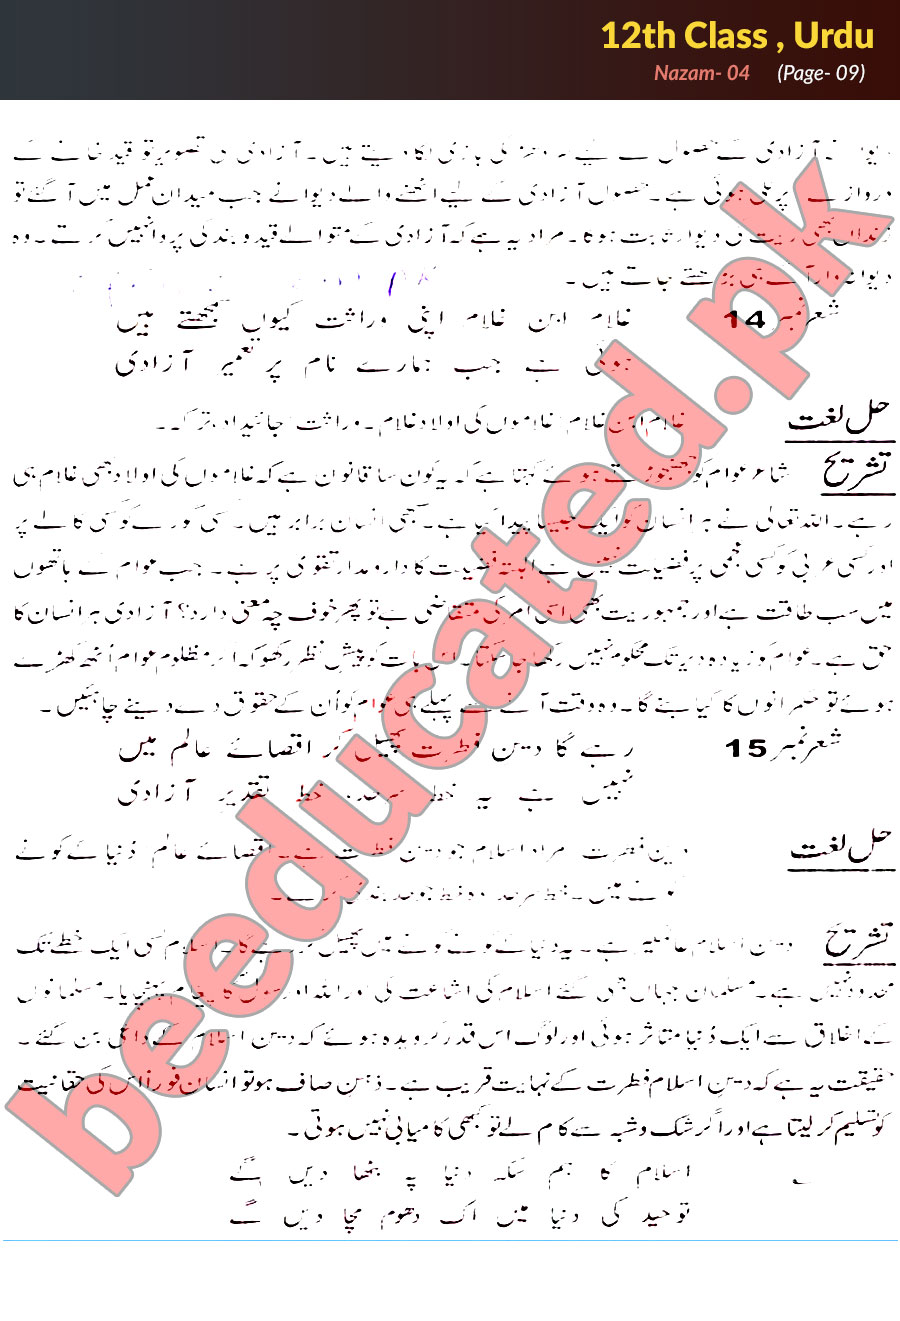 12th Class , Urdu
Nazam- 04 (Page- 09)
آزادی کے حصول کے لیے دھڑ کی بازی لگا دیتے ہیں۔ آزادی کی تصویر تو قید خانے کے
پر بنی ہوئی ہے۔ حصول آزادی کے لیے اٹھنے والے دیوانے جب میدان عمل میں آ گئے تو
زنداں بھی ریت کی دیوار ثابت ہوگا۔ مراد یہ ہے کہ آزادی کے متوالے قید و بند کی پروا نہیں کرتے۔ وہ
دیوانہ وار آگے ہی بڑھتے جاتے ہیں۔
شعر نمبر 14 غلام ابن غلام اپنی وراثت کیوں سمجھتے ہیں
ہوئی ہے جب ہمارے نام پر تعمیر آزادی
حل لغت غلام ابن غلام غلاموں کی اولاد غلام۔ وراثت جائیداد، ترکہ۔
تشریح شاعر عوام کو جھنجھوڑتے ہوئے کہتا ہے کہ یہ کون سا قانون ہے کہ غلاموں کی اولاد بھی غلام ہی
رہے۔ اللہ تعالیٰ نے ہر انسان کو ایک جیسا پیدا کیا ہے۔ سبھی انسان برابر ہیں۔ کسی گورے کو کسی کالے پر
اور کسی عربی کو کسی عجمی پر فضیلت نہیں ہے البتہ فضیلت کا دارومدار تقویٰ پر ہے۔ جب عوام کے ہاتھوں
میں سب طاقت ہے اور جمہوریت بھی اسی امر کی متقاضی ہے تو پھر خوف چہ معنی دارد؟ آزادی ہر انسان کا
حق ہے۔ عوام کو زیادہ دیر تک محکوم نہیں رکھا جا سکتا۔ اس بات کو پیش نظر رکھو کہ اگر مظلوم عوام اُٹھ کھڑے
ہوئے تو حکمرانوں کا کیا بنے گا۔ وہ وقت آنے سے پہلے ہی عوام کو اُن کے حقوق دے دینے چاہئیں۔
شعر نمبر 15 رہے گا دین فطرت پھیل کر اقصائے عالم میں
نہیں ہے یہ خط سرحد، خط تقدیر آزادی
حل لغت دین فطرت مراد اسلام جو دین فطرت ہے۔ اقصائے عالم دُنیا کے کونے
کونے میں۔ خط سرحد وہ خط جو حد بندی کرے۔
تشریح دین اسلام عالمگیر ہے۔ یہ دنیا کے کونے کونے میں پھیل کر رہے گا۔ اسلام کسی ایک خطے تک
محدود نہیں ہے۔ مسلمان جہاں بھی گئے اسلام کی اشاعت کی اور اللہ اور رسول کا پیغام پہنچایا۔ مسلمانوں
کے اخلاق سے ایک دُنیا متاثر ہوئی اور لوگ اس قدر گرویدہ ہوئے کہ دین اسلام کے داعی بن گئے۔
حقیقت یہ ہے کہ دین اسلام فطرت کے نہایت قریب ہے۔ ذہن صاف ہو تو انسان فوراً اس کی حقانیت
کو تسلیم کر لیتا ہے اور اگر شک و شبہ سے کام لے تو کبھی کامیابی نہیں ہوتی۔
اسلام کا ہم سکہ دنیا پہ بٹھا دیں گے
توحید کی دنیا میں اک دھوم مچا دیں گے
beeducated.pk